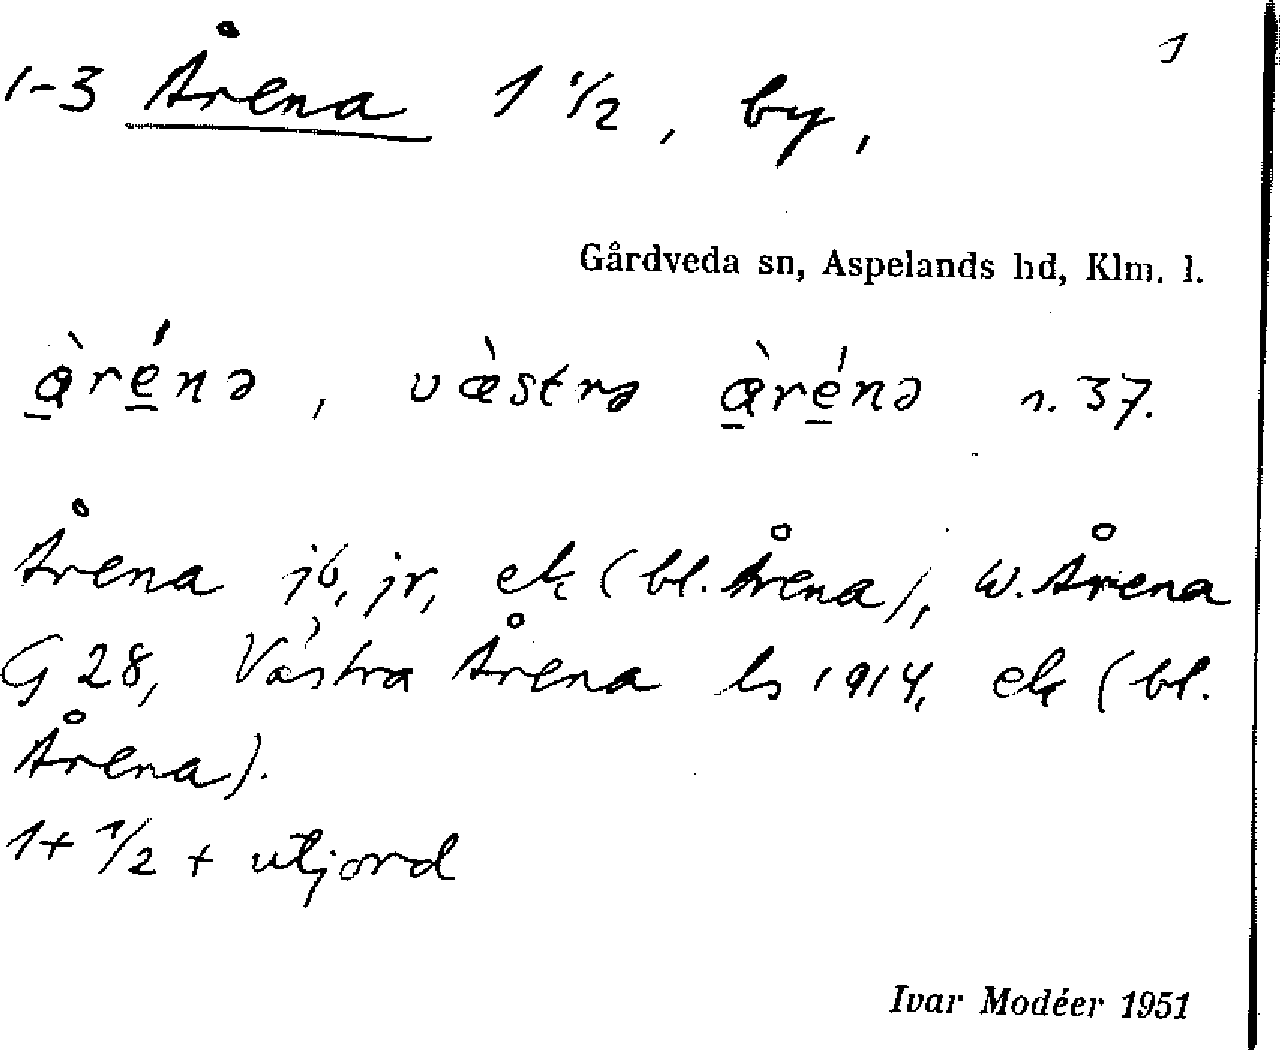 1
1-3 Årena 1 1/2, by,
Gårdveda sn, Aspelands hd, Klm. l.
æ̀rénə, væ̀strə æ̀rénə s. 37.
Årena jb, jr, ek (bl. Årena), W. Årena
G 28, Västra Årena ls 1914, ek (bl.
Årena).
1+ 1/2 + utjord
Ivar Modéer 1951